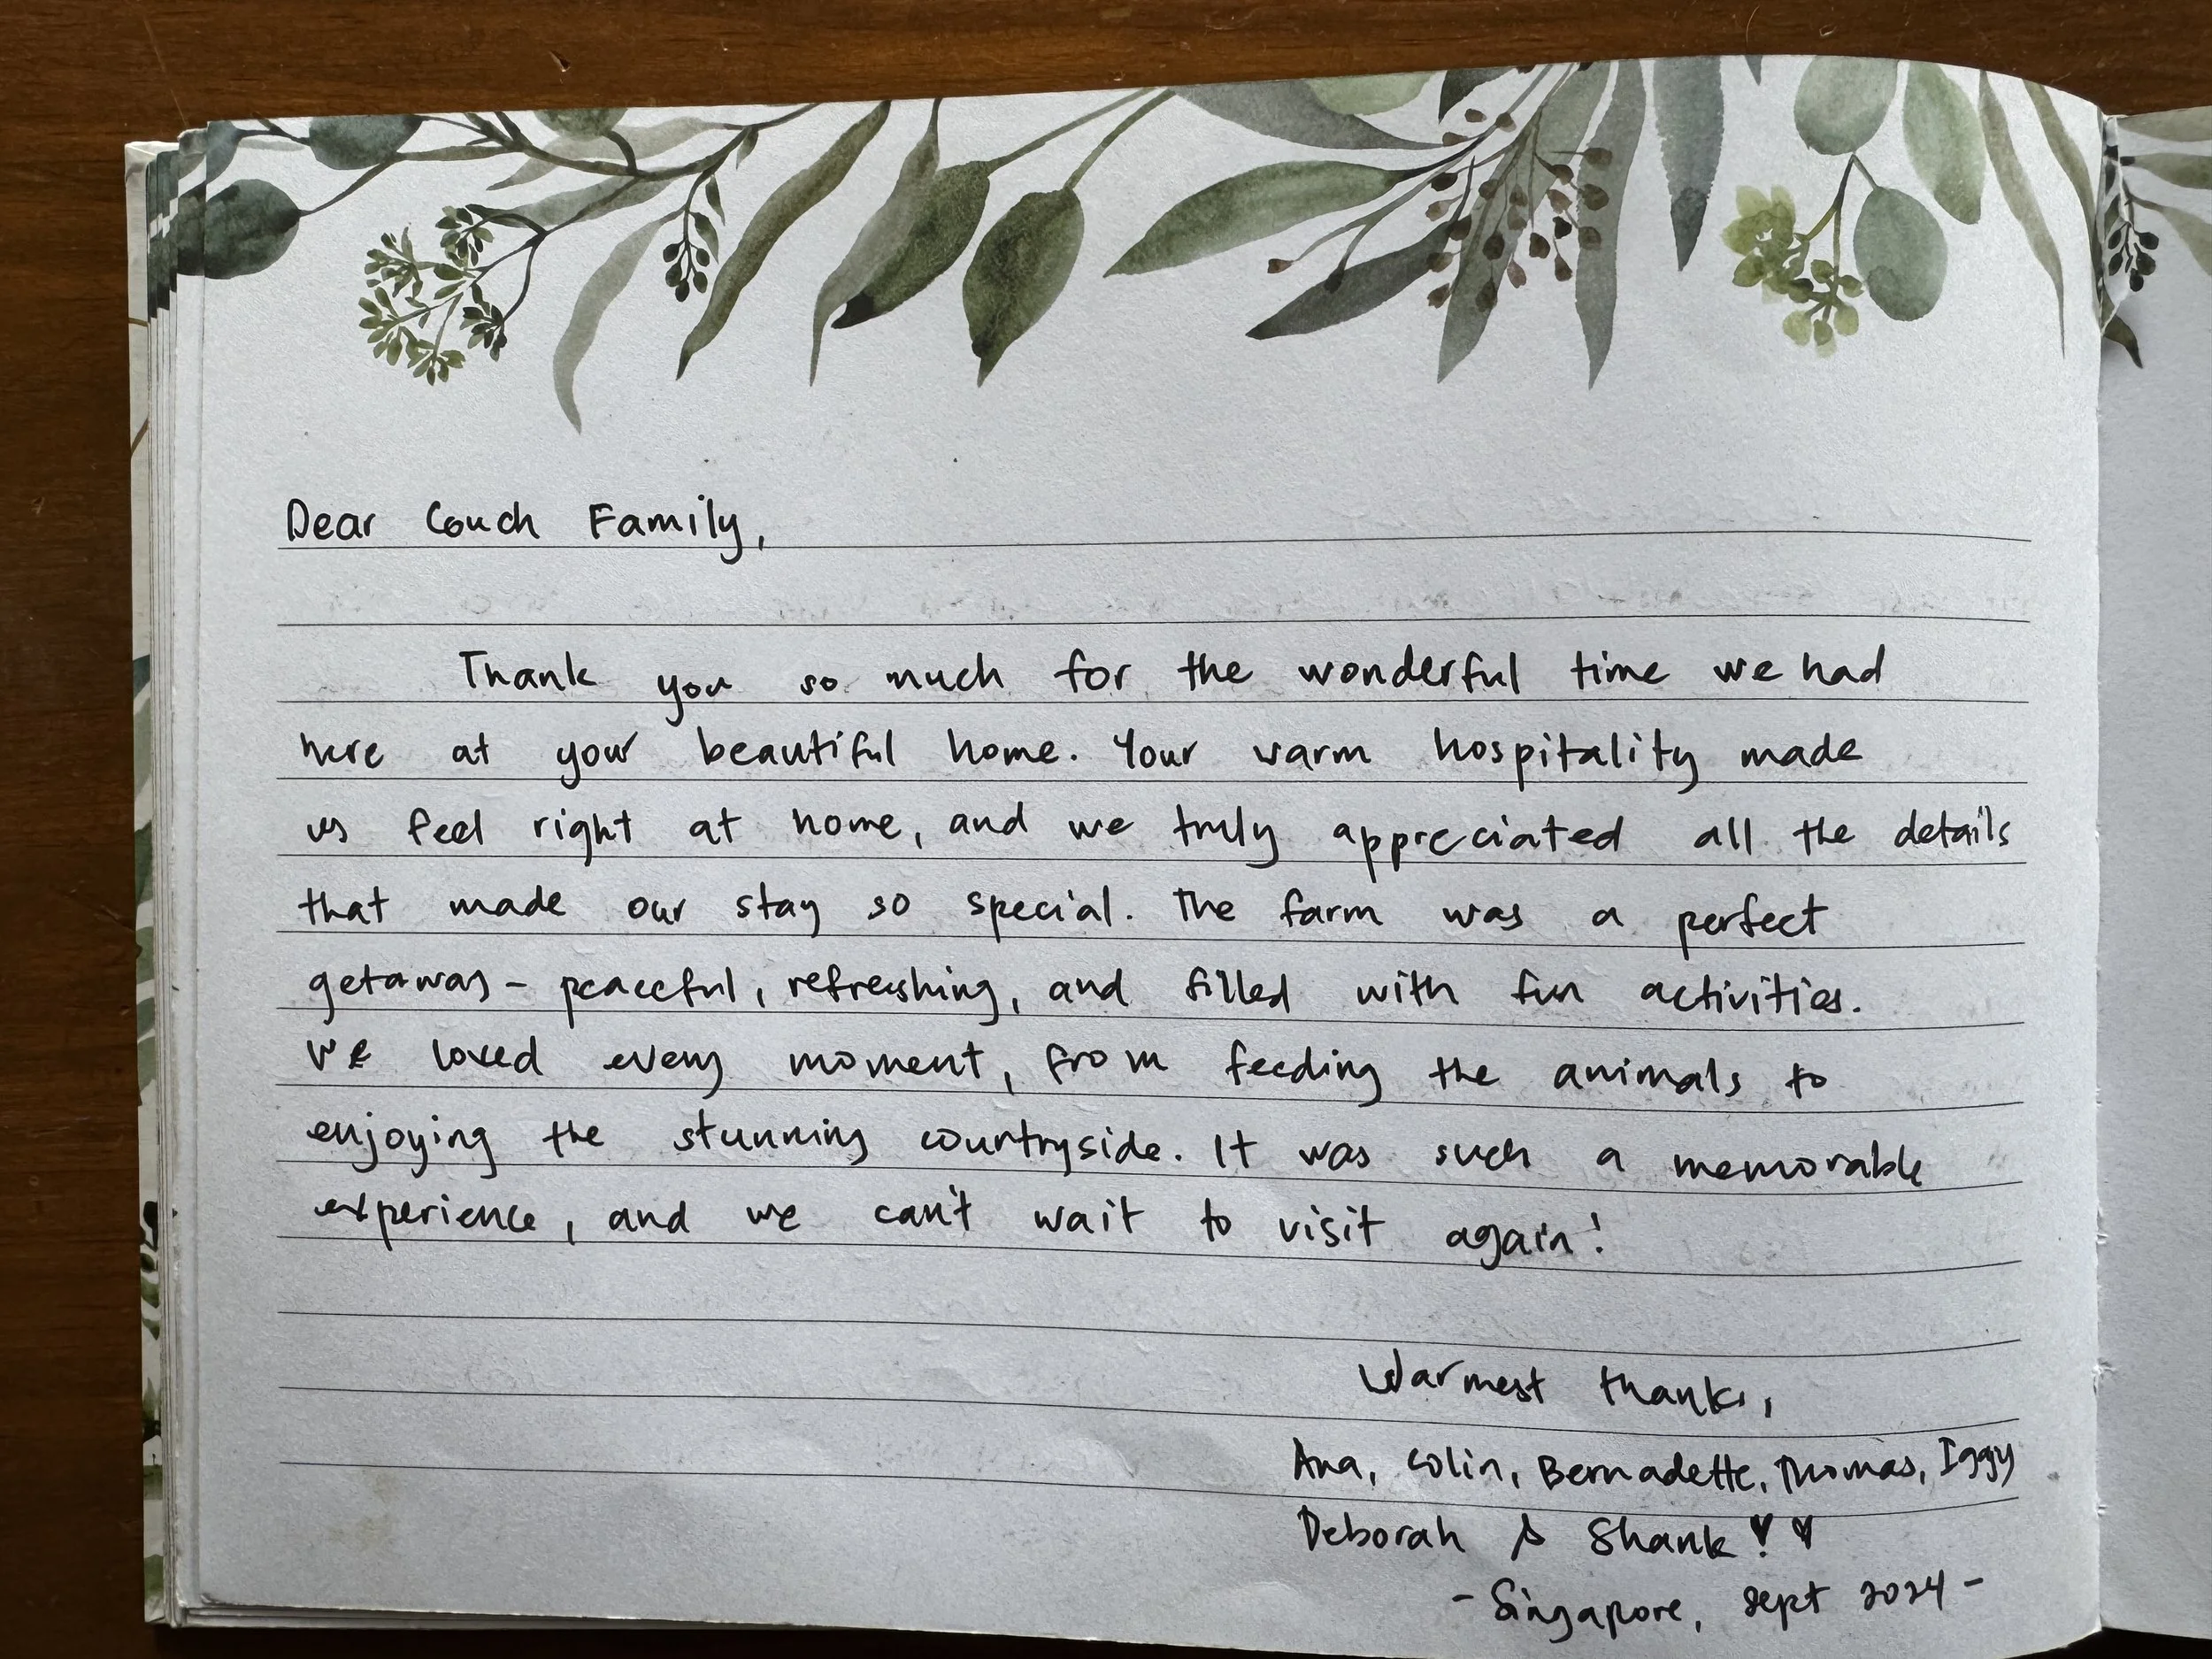 Dear Couch Family,
Thank you so much for the wonderful time we had
here at your beautiful home. Your warm hospitality made
us feel right at home, and we truly appreciated all the details
that made our stay so special. The farm was a perfect
getaway - peaceful, refreshing, and filled with fun activities.
We loved every moment, from feeding the animals to
enjoying the stunning countryside. It was such a memorable
experience, and we can't wait to visit again!
Warmest thanks,
Ana, Colin, Bernadette, Thomas, Iggy
Deborah & Shank! ♥
- Singapore, Sept 2024 -